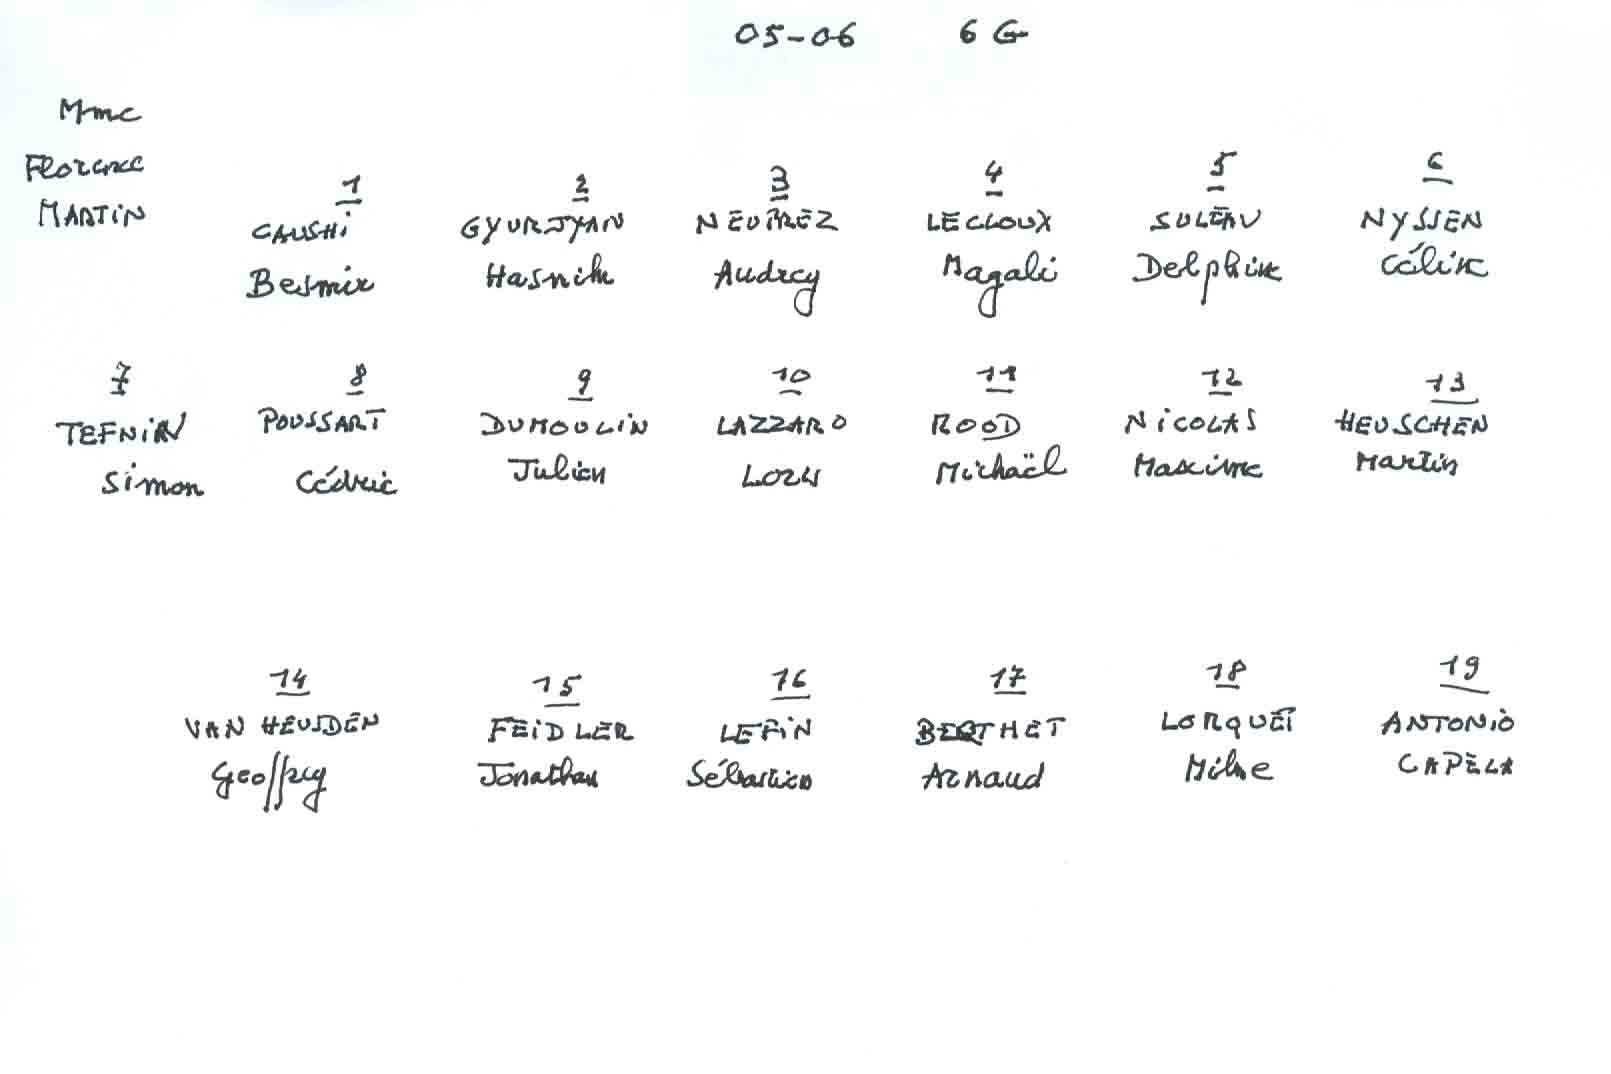 05-06 6G
Mme
Florence
MARTIN
1 2 3 4 5 6
CAUSHi GYURJYAN NEUPREZ LECLOUX SULEAU NYSSEN
Besmir Hasmik Audrey Magali Delphine Céline
7 8 9 10 11 12 13
TEFNiN POUSSART DUMOULiN LAZZARO ROOD NiCOLAS HEUSCHEN
Simon Cédric Julien Michaël Maxime Martin
14 15 16 17 18 19
VAN HEUSDEN FEiDLER LEFiN BERTHET LORQUET ANTONiO
Geoffrey Jonathan Sébastien Arnaud CAPELA